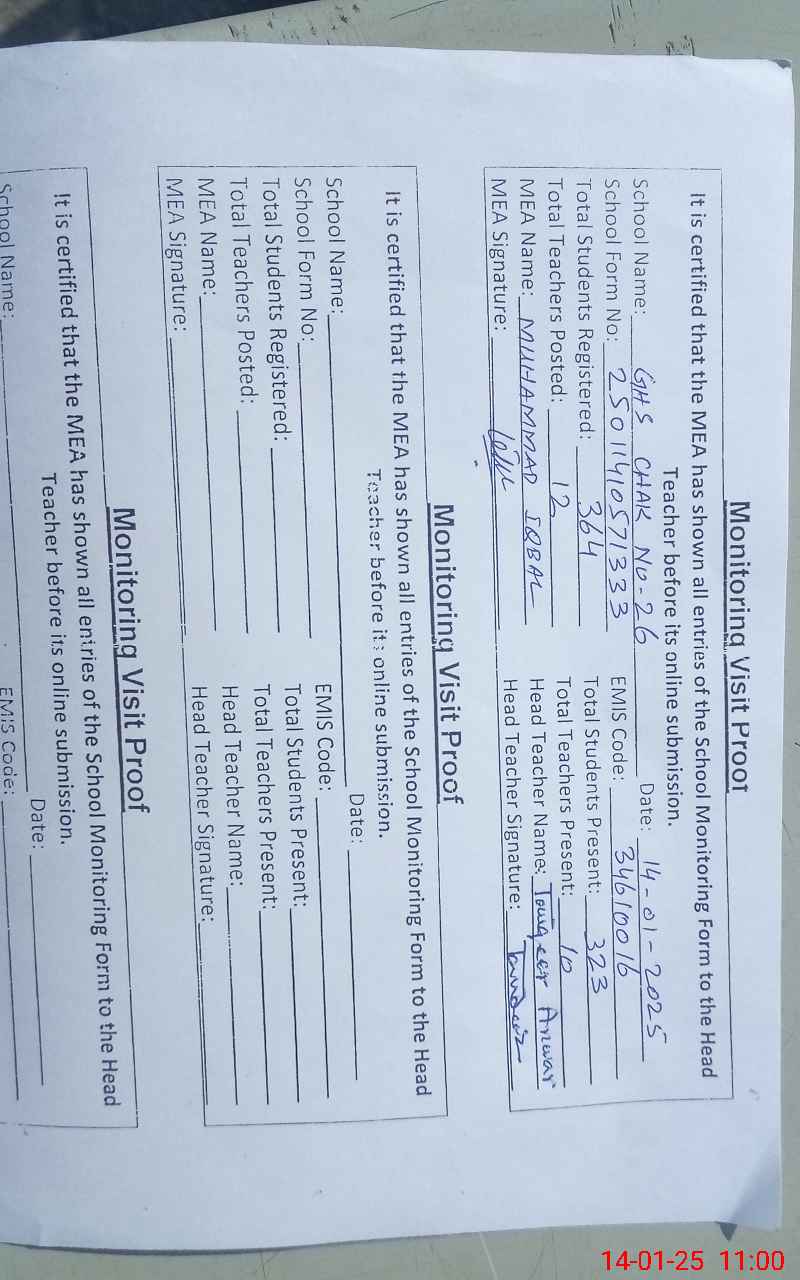 Monitoring Visit Proof
It is certified that the MEA has shown all entries of the School Monitoring Form to the Head
Teacher before its online submission.
School Name: GHS CHAK NO-26 Date: 14-01-2025
School Form No: 25011410571333 EMIS Code: 34610016
Total Students Registered: 364 Total Students Present: 323
Total Teachers Posted: 12 Total Teachers Present: 10
MEA Name: MUHAMMAD IQBAL Head Teacher Name: Anwar
MEA Signature: Head Teacher Signature:
Monitoring Visit Proof
It is certified that the MEA has shown all entries of the School Monitoring Form to the Head
Teacher before its online submission.
School Name: Date:
School Form No: EMIS Code:
Total Students Registered: Total Students Present:
Total Teachers Posted: Total Teachers Present:
MEA Name: Head Teacher Name:
MEA Signature: Head Teacher Signature:
Monitoring Visit Proof
It is certified that the MEA has shown all entries of the School Monitoring Form to the Head
Teacher before its online submission.
Date:
School Name: EMIS Code:
14-01-25 11:00